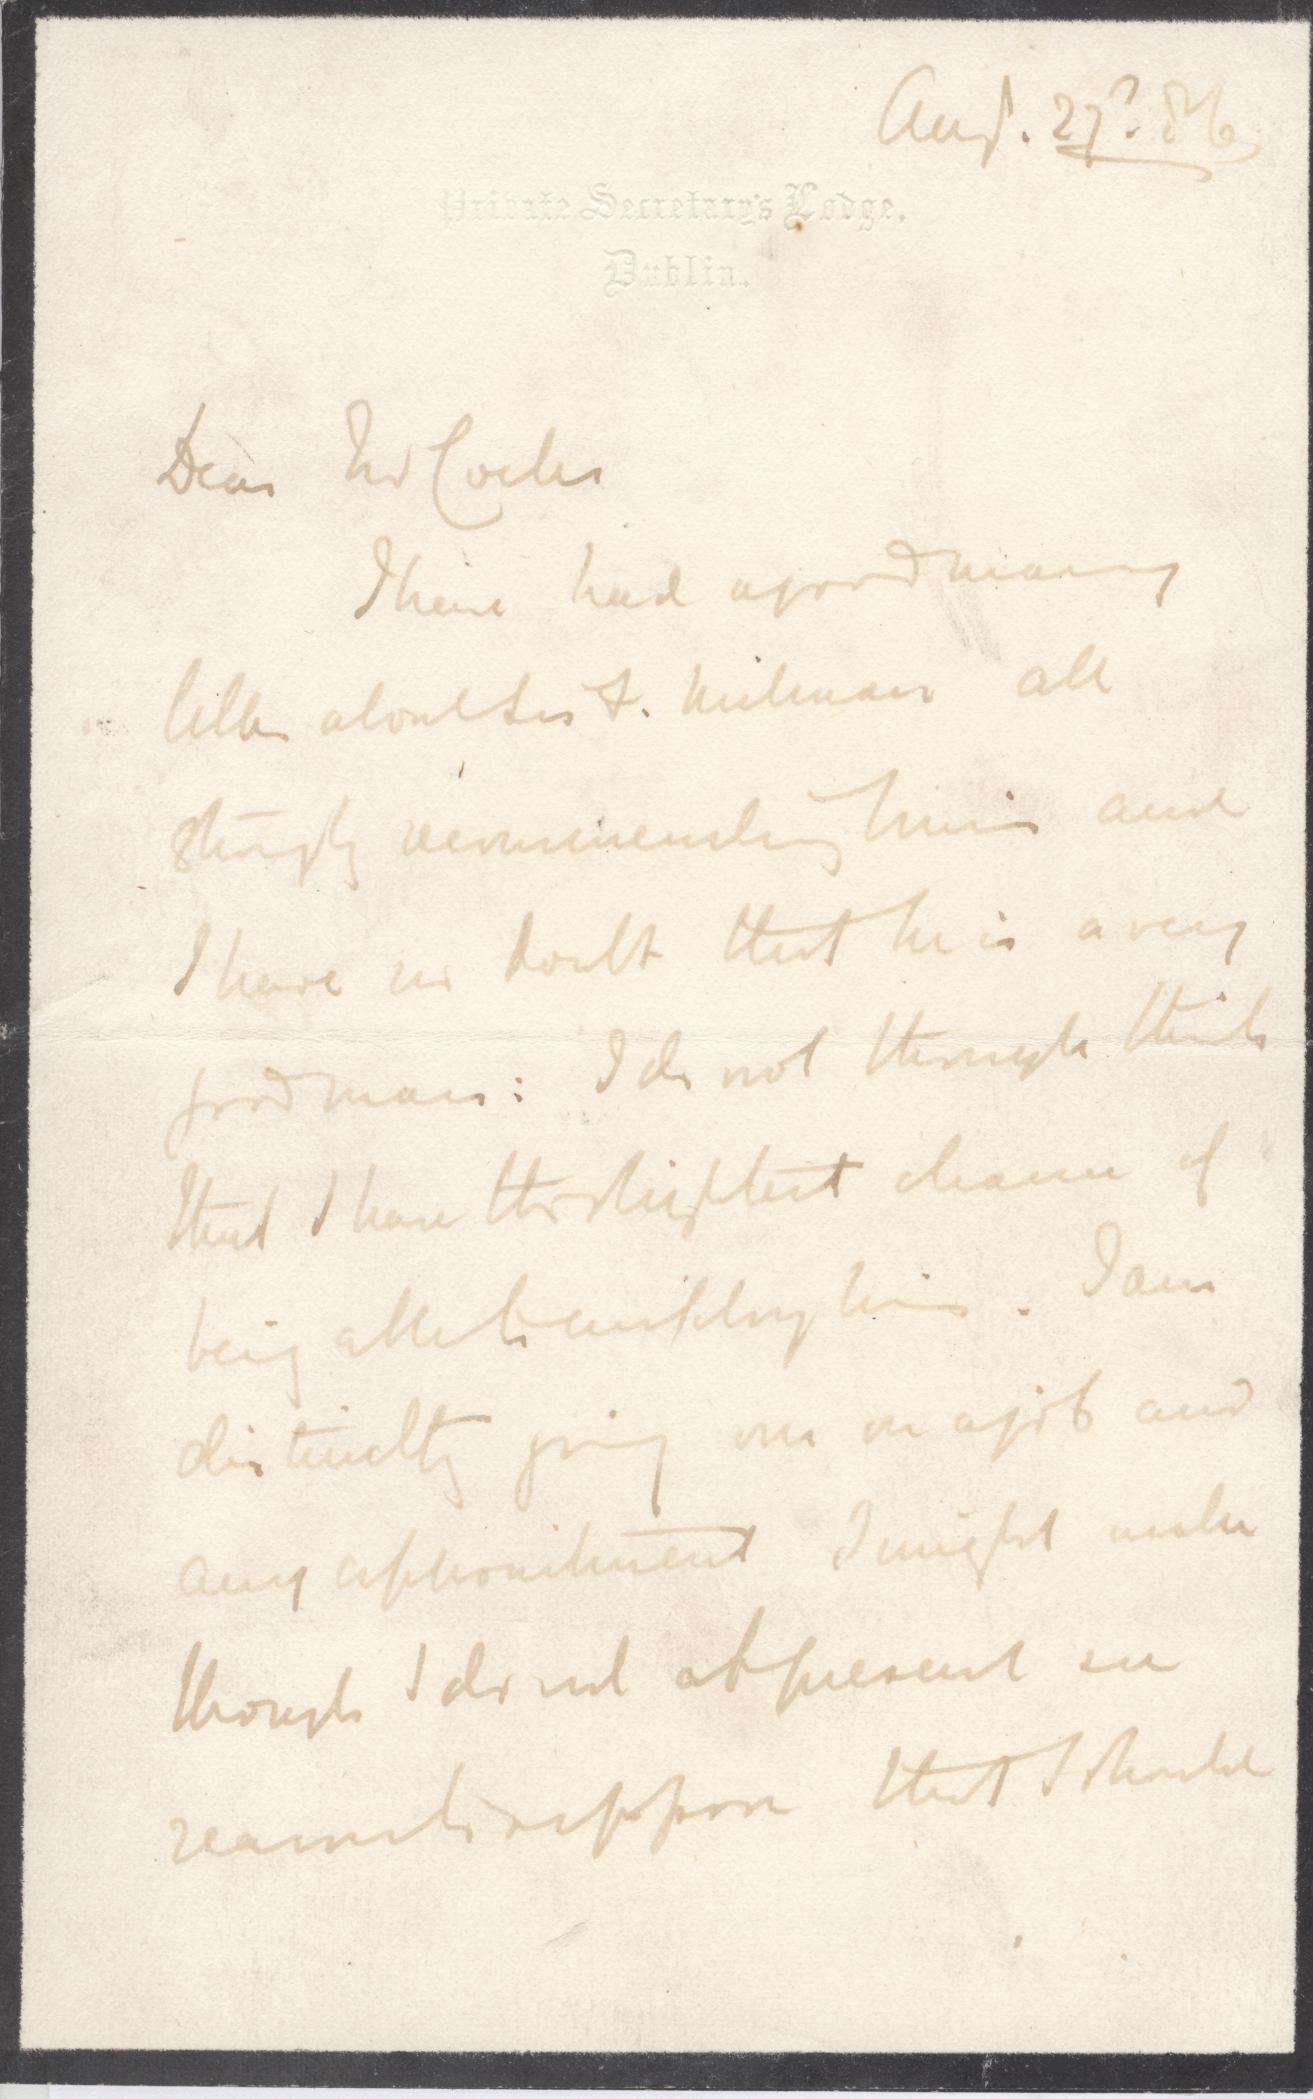 Aug. 27? 86
Private Secretary's Lodge,
Dublin.
Dear Mr Cocks
I have had a good many
letters about F. Milman all
strongly recommending him and
I have no doubt that he is a very
good man: I do not though think
that I have the slightest chance of
being able to employ him. I am
distinctly going on a job and
any appointment I might make
though I do not at present see
reason to suppose that I should